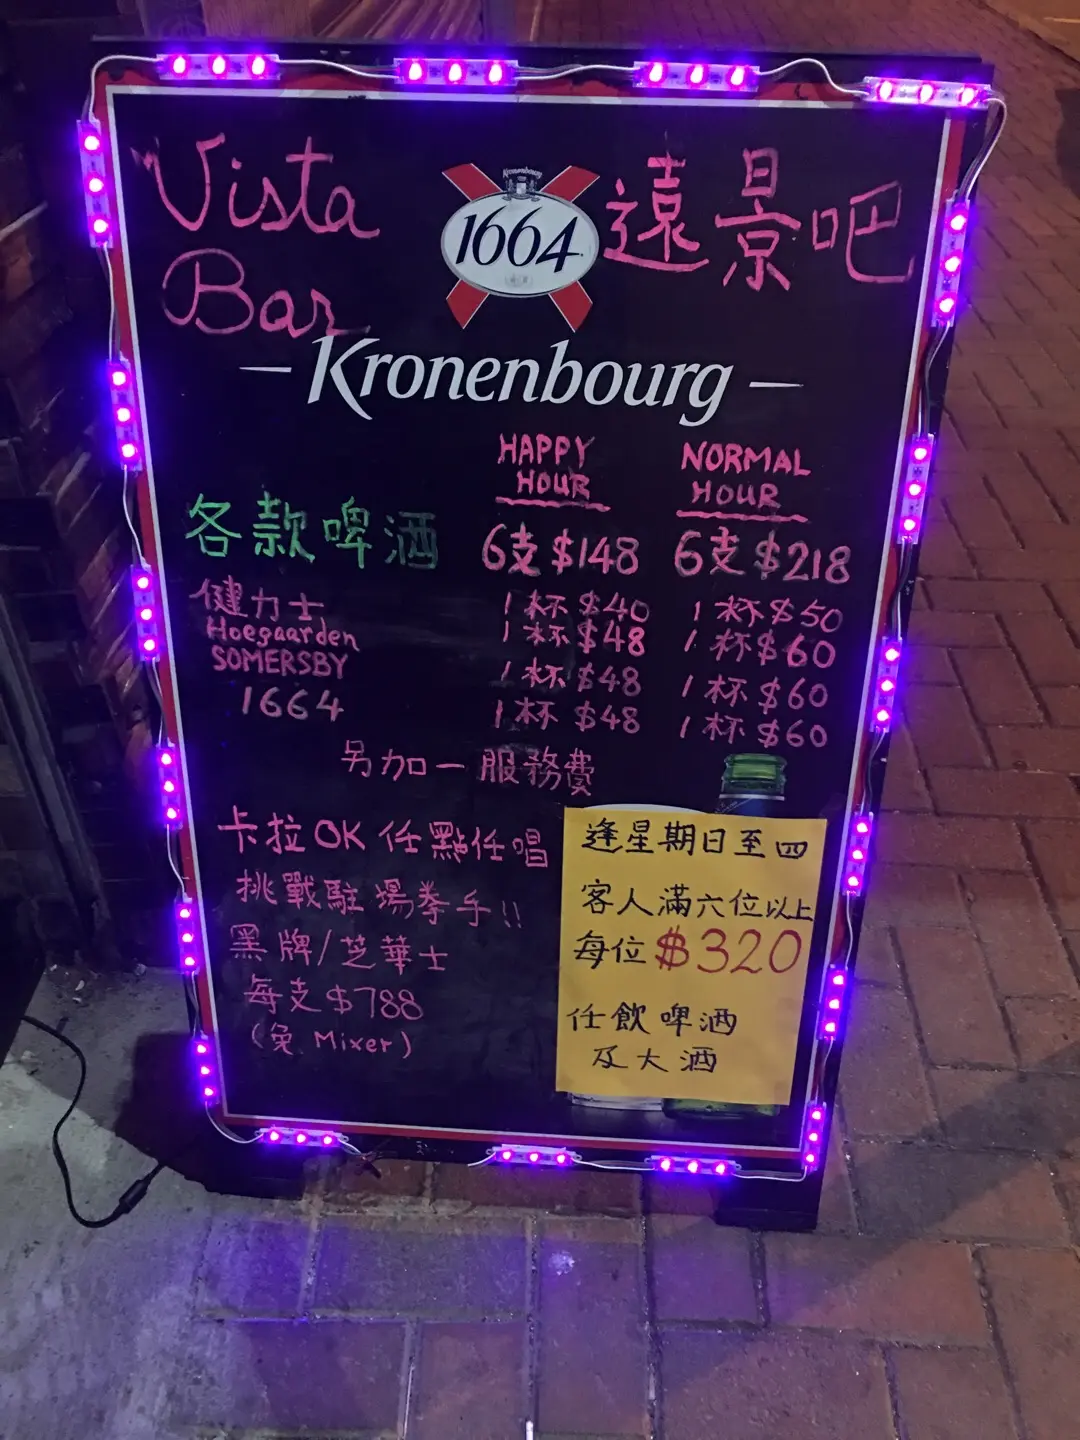 Vista
Bar
Kronenbourg
1664
遠景吧
Kronenbourg
HAPPY HOUR
NORMAL HOUR
各款啤酒 6支 $148 6支 $218
健力士 1杯 $40 1杯 $50
Hoegaarden 1杯 $48 1杯 $60
SOMERSBY 1杯 $48 1杯 $60
1664 1杯 $48 1杯 $60
另加一服務費
卡拉OK 任點任唱
挑戰駐場拳手!!
黑牌/芝華士
每支 $788
(免 Mixer)
逢星期日至四
客人滿六位以上
每位 $320
任飲啤酒
及大酒